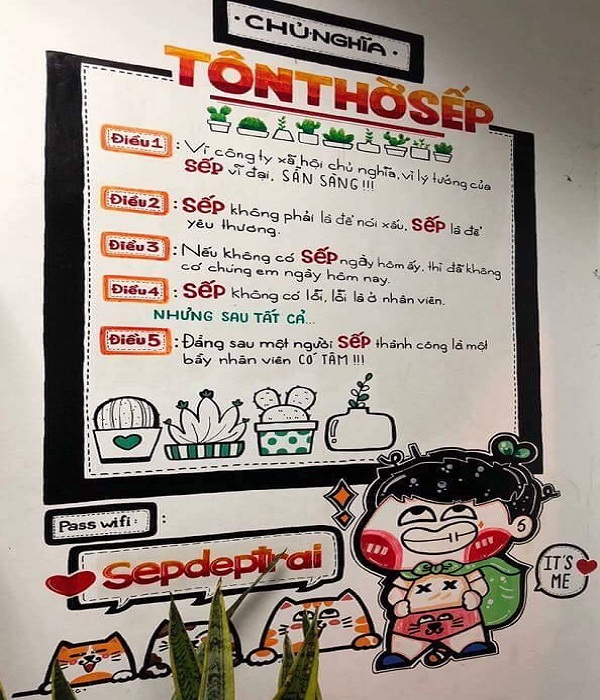 CHỦ NGHĨA
TÔN THỜ SẾP
Điều 1 : Vì công ty xã hội chủ nghĩa, vì lý tưởng của
SẾP vĩ đại, SẴN SÀNG !!!
Điều 2 : SẾP không phải là để nói xấu, SẾP là để
yêu thương.
Điều 3 : Nếu không có SẾP ngày hôm ấy, thì đã không
có chúng em ngày hôm nay.
Điều 4 : SẾP không có lỗi, lỗi là ở nhân viên.
NHƯNG SAU TẤT CẢ...
Điều 5 : Đằng sau một người SẾP thành công là một
bầy nhân viên CÓ TÂM !!!
Pass wifi :
Sepdeptrai
IT'S
ME